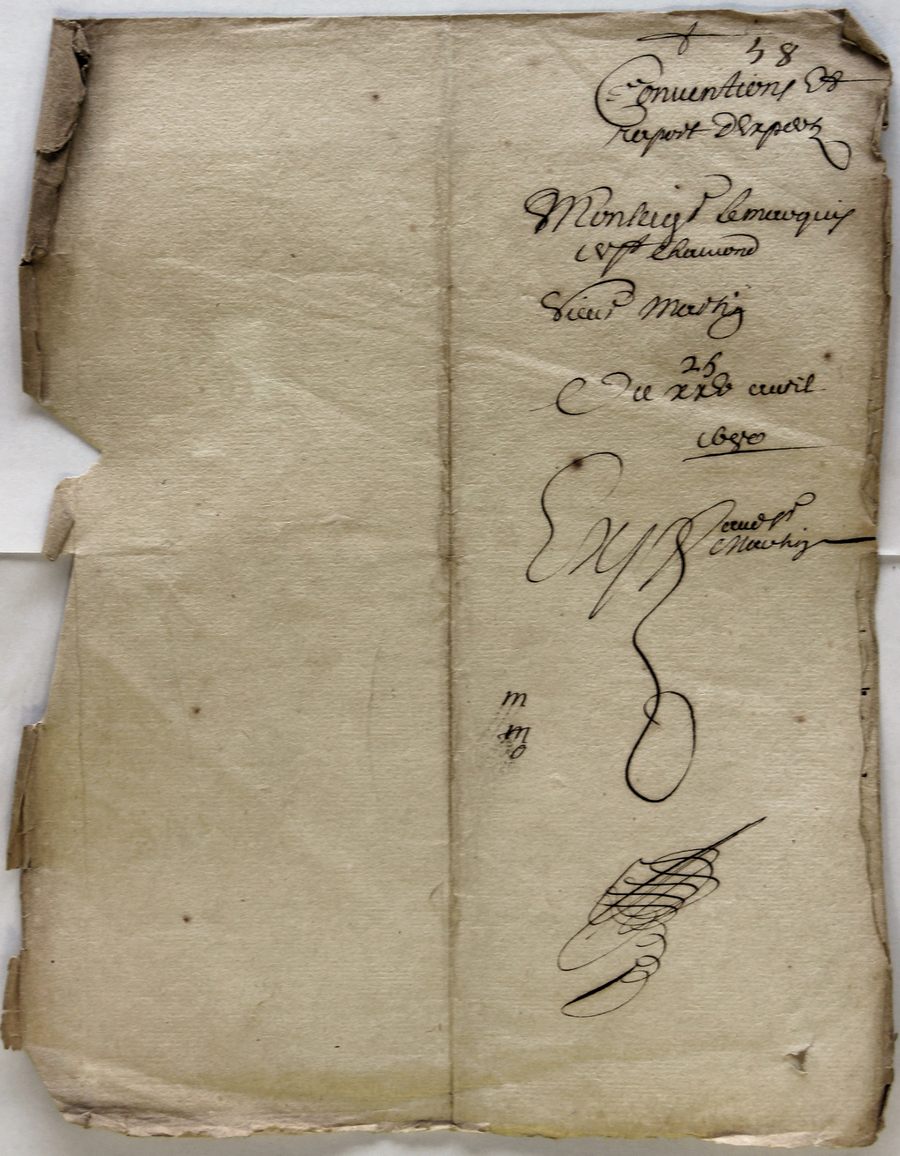 58
Conventions et
raport dexpertz
Monseigr le marquis
St Chamond
Sieur Marthig
25
Du xxv avril
1680
Exp
aud sr
Marthig
m
m
o